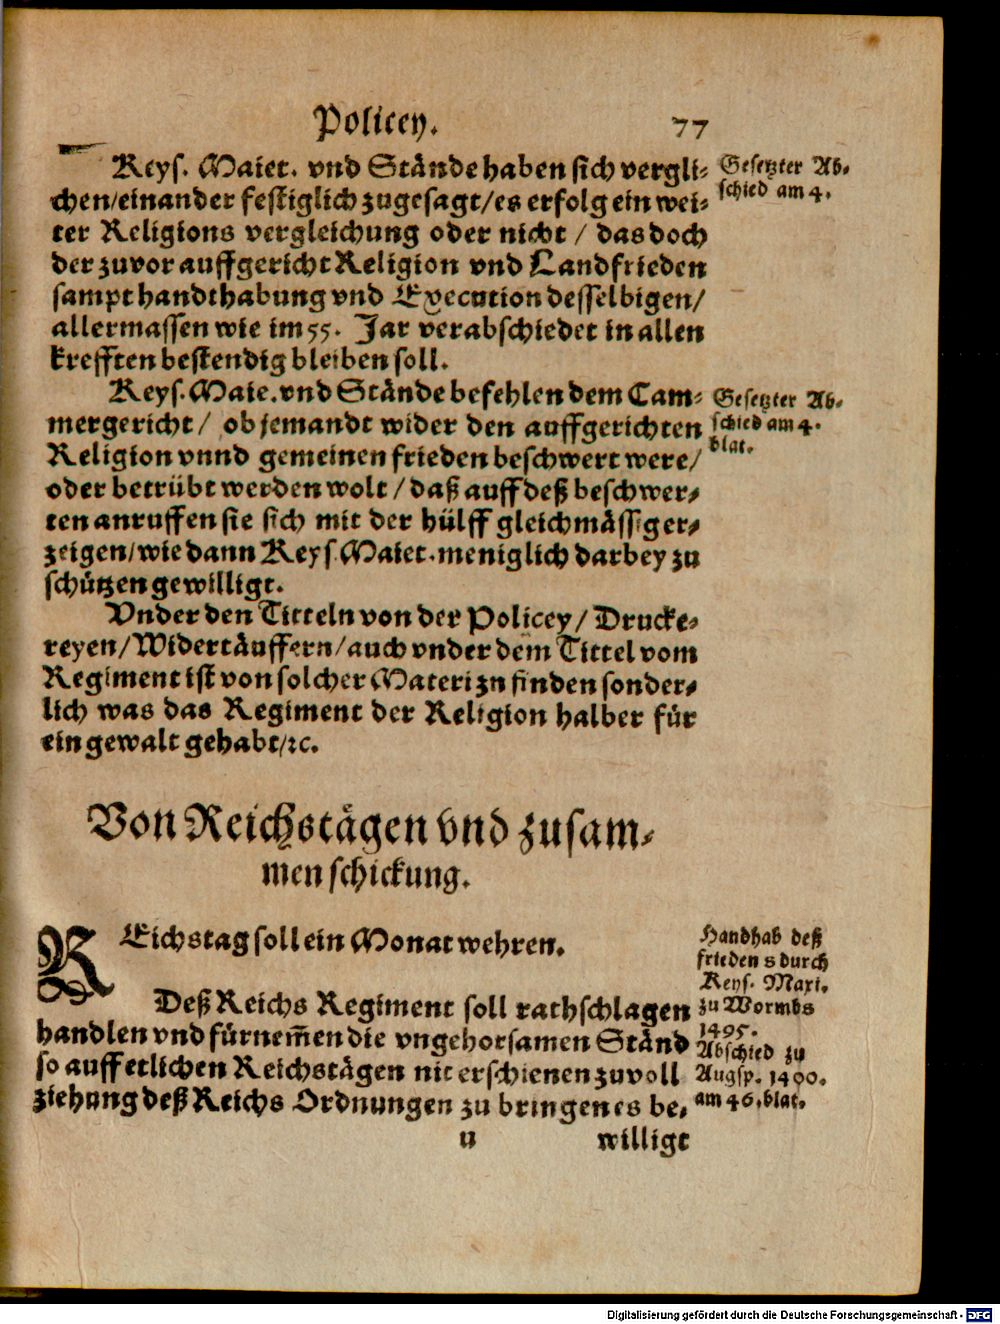 Policey. 77
Keys. Maiet. vnd Stände haben sich vergli-
chen/einander festiglich zugesagt/es erfolg ein wei-
ter Religions vergleichung oder nicht / das doch
der zuvor auffgericht Religion vnd Landfrieden
sampt handthabung vnd Execution desselbigen/
allermassen wie im 55. Jar verabschiedet in allen
krefften bestendig bleiben soll.
Gesetzter Ab-
schied am 4.
Keys. Maie. vnd Stände befehlen dem Cam-
mergericht/ ob jemandt wider den auffgerichten
Religion vnnd gemeinen frieden beschwert were/
oder betrübt werden wolt / daß auff deß beschwer-
ten anruffen sie sich mit der hülff gleichmässiger-
zeigen/wie dann Keys. Maiet. meniglich darbey zu
schützen gewilligt.
Gesetzter Ab-
schied am 4.
blat.
Vnder den Titteln von der Policey/ Drucke-
reyen/Widertäuffern/auch vnder dem Tittel vom
Regiment ist von solcher Materi zn finden sonder-
lich was das Regiment der Religion halber für
ein gewalt gehabt/ꝛc.
Von Reichstägen vnd zusam-
men schickung.
REichstag soll ein Monat wehren.
Deß Reichs Regiment soll rathschlagen
handlen vnd fürnem̄en die vngehorsamen Ständ
so auff etlichen Reichstägen nit erschienen zuvoll
ziehung deß Reichs Ordnungen zu bringen es be-
Handhab deß
friedens durch
Keys. Maxi.
zu Wormbs
1495.
Abschied zu
Augsp. 1500.
am 46. blat.
u willigt
Digitalisierung gefördert durch die Deutsche Forschungsgemeinschaft - DFG